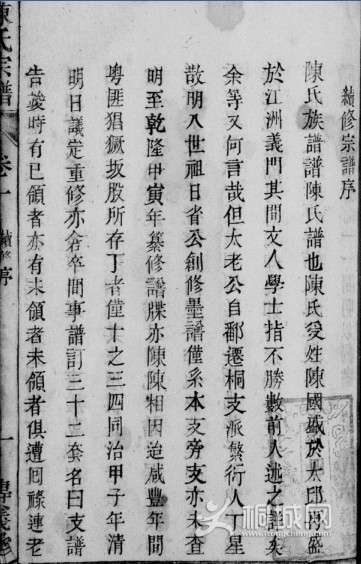 續修宗譜序
陳氏族譜譜陳氏譜也陳氏受姓陳國盛於太邱再盛
於江洲義門其間文人學士指不勝數前人述之詳矣
余等又何言哉但太老公自鄱遷桐支派繁衍人丁星
散明八世祖日省公創修墨譜僅系本支旁支亦未查
明至乾隆甲寅年纂修譜牒亦陳陳相因迨咸豐年間
粵匪猖獗坂股所存丁者僅十之三四同治甲子年清
明日議定重修亦倉卒間事譜訂三十二套名曰支譜
告竣時有已領者亦有未領者未領者俱遭囘祿連老
陳氏宗譜 卷一 續修序 一
桐城网